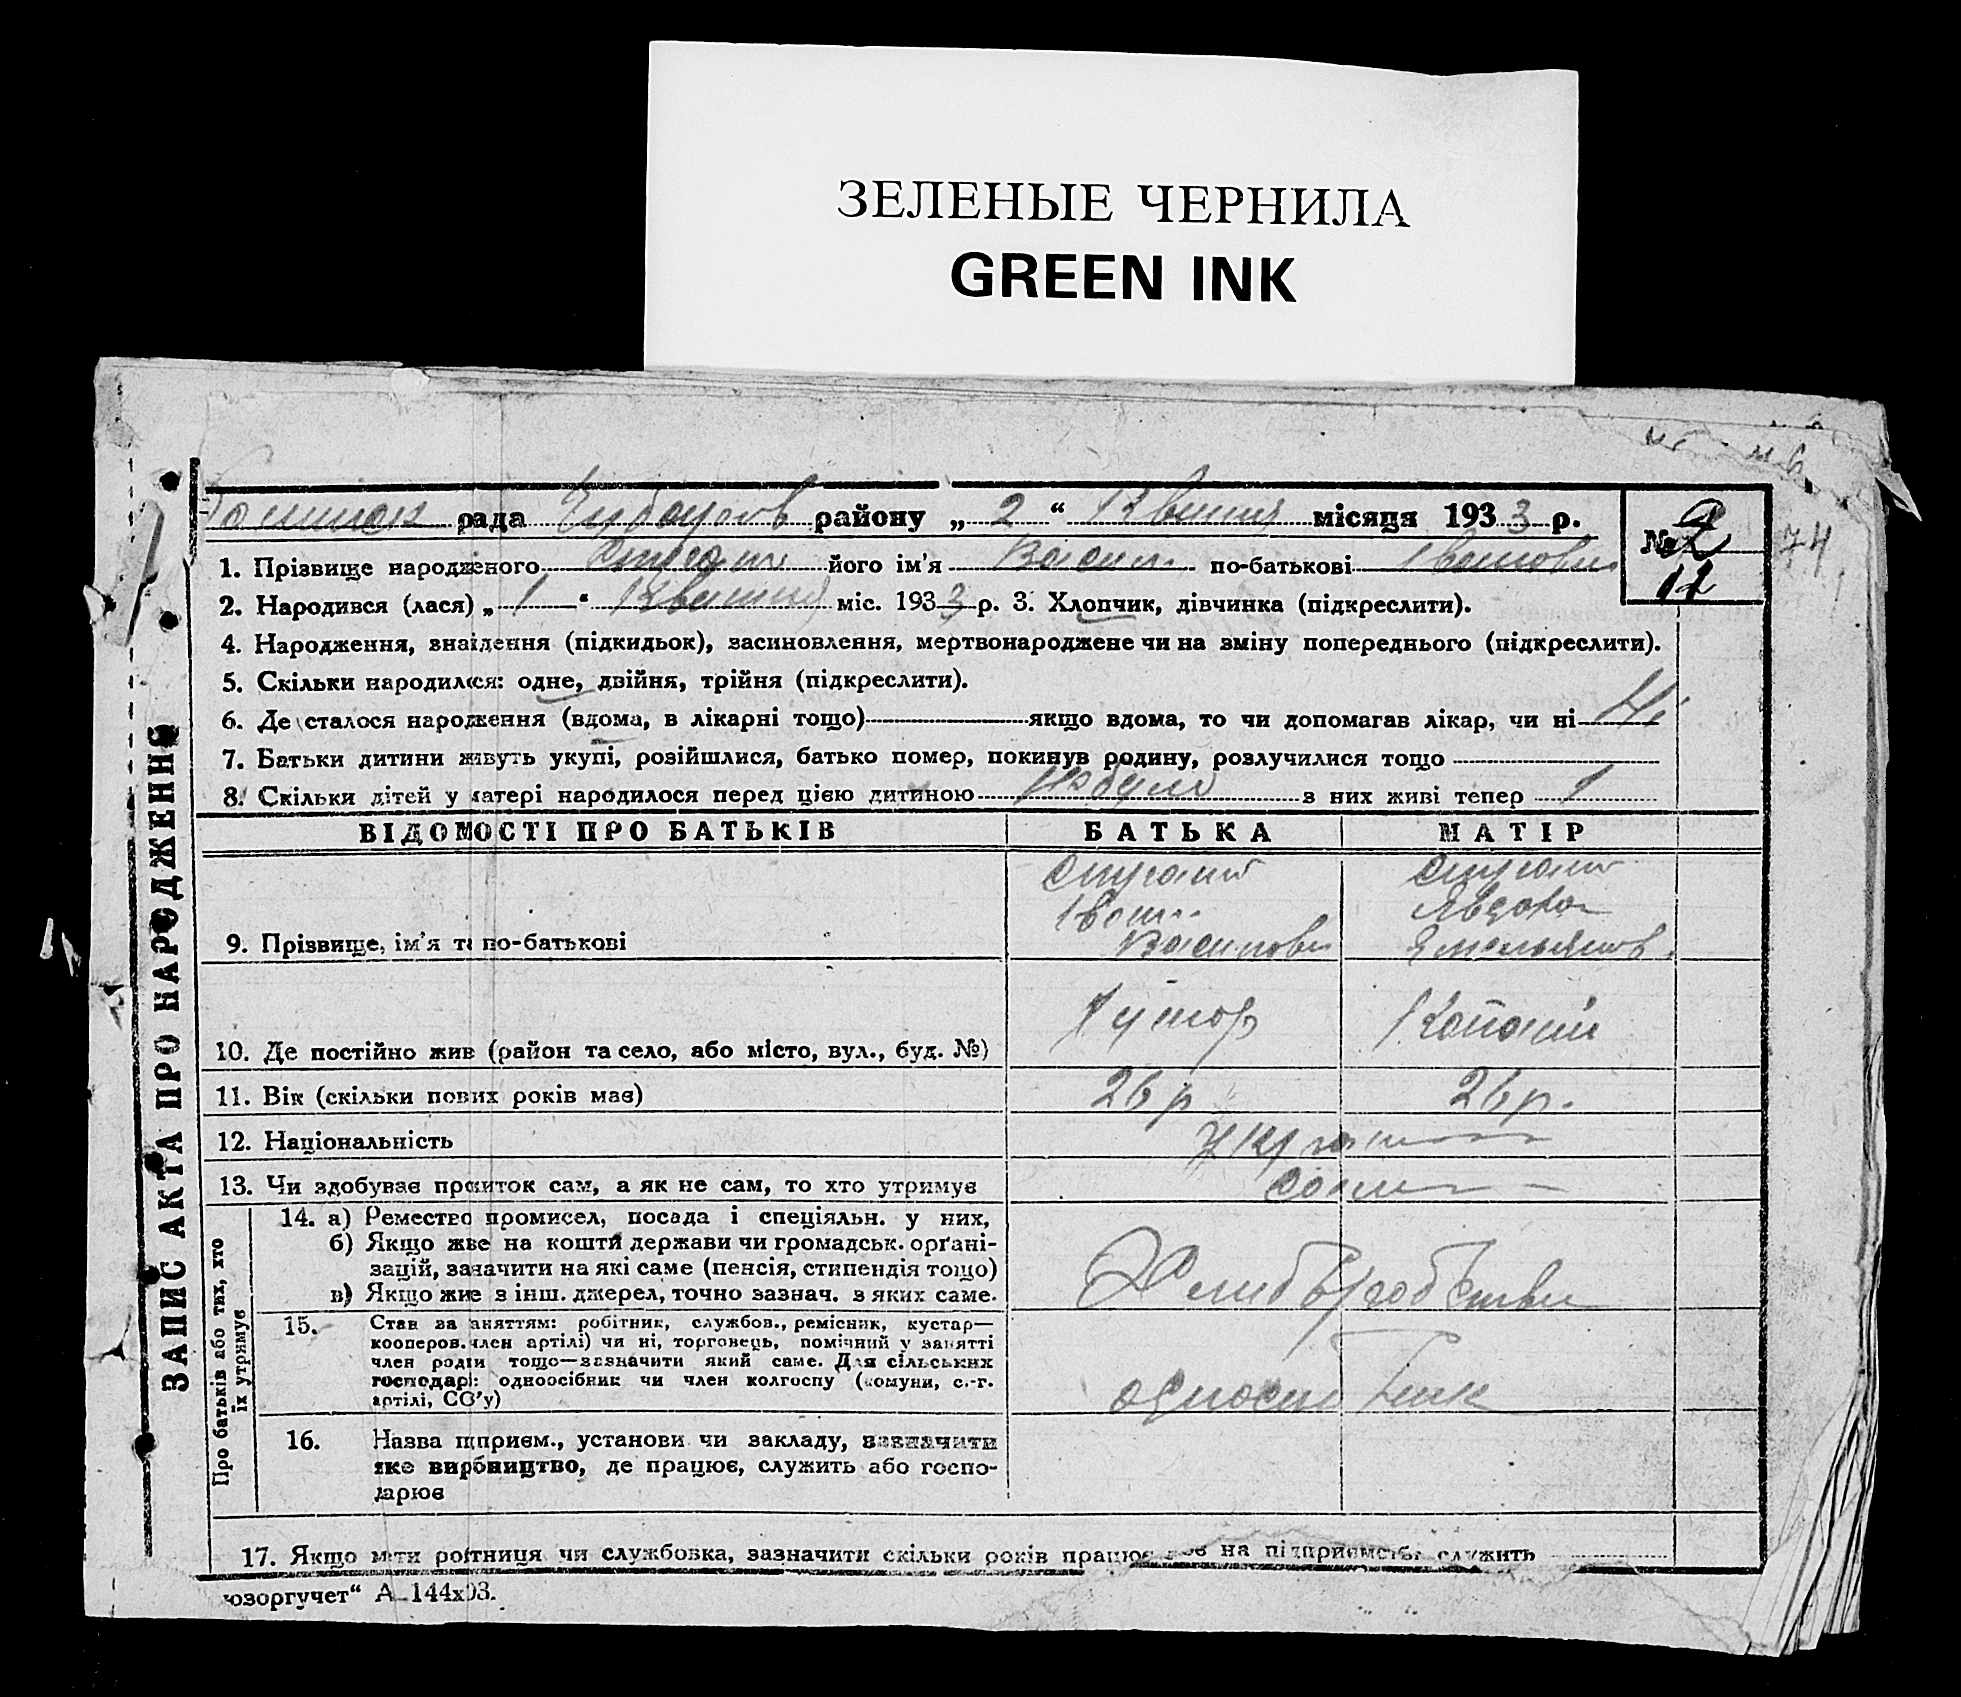 ЗЕЛЕНЫЕ ЧЕРНИЛА
GREEN INK
рада району „ 2 “ Квітня місяця 1933 р.
№ 2
74
12
1. Прізвище народженого його ім'я Васил по-батькові Іванович
2. Народився (лася) „ 1 “ Квітня міс. 1933 р. 3. Хлопчик, дівчинка (підкреслити).
4. Народження, знайдення (підкидьок), засиновлення, мертвонароджене чи на зміну попереднього (підкреслити).
5. Скільки народилося: одне, двійня, трійня (підкреслити).
6. Де сталося народження (вдома, в лікарні тощо) якщо вдома, то чи допомагав лікар, чи ні Ні
7. Батьки дитини живуть укупі, розійшлися, батько помер, покинув родину, розлучилися тощо
8. Скільки дітей у матері народилося перед цією дитиною з них живі тепер 1
ЗАПИС АКТА ПРО НАРОДЖЕННЯ
ВІДОМОСТІ ПРО БАТЬКІВ БАТЬКА МАТІР
Іван Явдоха
9. Прізвище, ім'я та по-батькові Василович Ємельянов.
Хутор Копані
10. Де постійно жив (район та село, або місто, вул., буд. №)
11. Вік (скільки пових років має) 26 р 26 р.
12. Національність
13. Чи здобуває прожиток сам, а як не сам, то хто утримує
Про батьків або тих, хто їх утримує
14. а) Ремество промисел, посада і спеціяльн. у них,
б) Якщо живе на кошти держави чи громадськ. орґані-
зацій, зазначити на які саме (пенсія, стипендія тощо)
в) Якщо живе з інш. джерел, точно зазнач. з яких саме.
15. Стан за заняттям: робітник, службов., ремісник, кустар—
кооперов. член артілі) чи ні, торговець, помічний у занятті
член родини тощо—зазначити який саме. Для сільських
господарів: одноосібник чи член колгоспу (комуни, с.-г.
артілі, СОЗ'у)
16. Назва підприєм., установи чи закладу, зазначити
яке виробництво, де працює, служить або госпо-
дарює
17. Якщо мати робітниця чи службовка, зазначити скільки років працює на підприємстві служить
юзоргучет“ А 144х03.